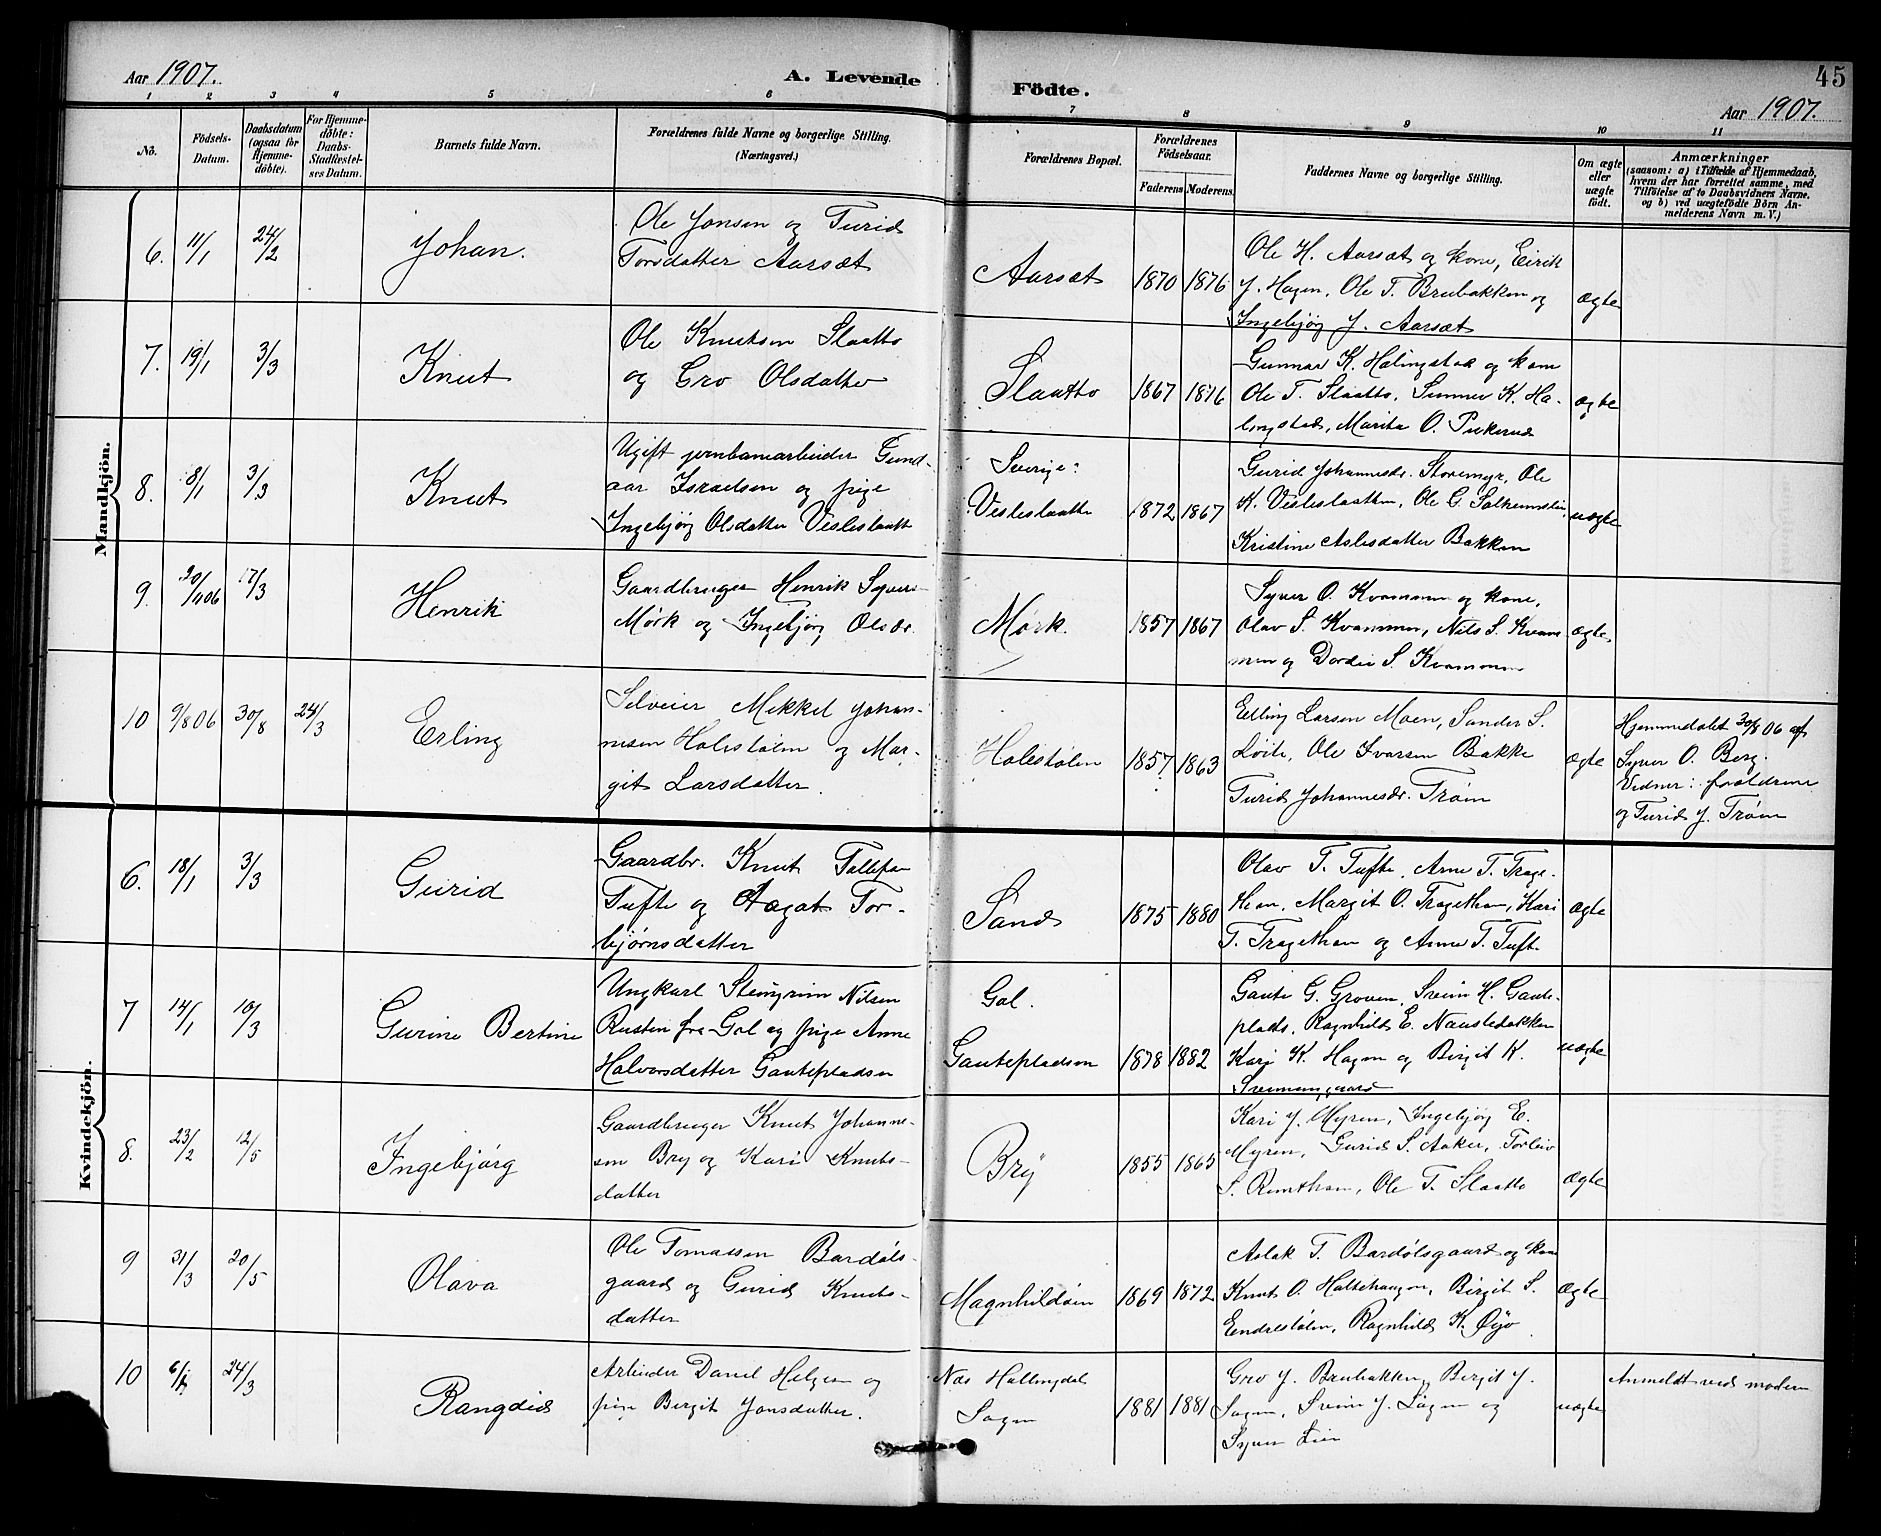 Aar 1907.
A. Levende
Födte.
45
Aar 1907.
1 2 3 4 5 6 7 8 9 10 11
No.
Födsels-
Datum.
Daabsdatum
(ogsaa for
Hjemme-
döbte).
For Hjemme-
döbte:
Daabs-
Stadfæstel-
ses Datum.
Barnets fulde Navn.
Forældrenes fulde Navne og borgerlige Stilling.
(Næringsvei.)
Forældrenes Bopæl.
Forældrenes
Födselsaar.
Faderens. Moderens.
Faddernes Navne og borgerlige Stilling.
Om ægte
eller
uægte
födt.
Anmærkninger
(saasom: a) i Tilfælde af Hjemmedaab,
hvem der har forrettet samme, med
Tilföielse af to Daabsvidners Navne.
og b) ved uægtefödte Börn An-
melderens Navn m. V.)
Mandkjön.
6. 11/1 24/2
Johan.
Ole Jonsen og Turid
Torsdatter Aarsæt
Aarsæt
1870 1876
Ole H. Aarsæt og kone, Eirik
J. Hagen, Ole T. Brubakken og
Ingebjøg J. Aarsæt
ægte
7. 19/1 3/3
Knut
Ole Knutsen Slaatto
og Gro Olsdatter
Slaatto
1867 1876
Gunnar K. Halingstad og kone
Ole T. Slaatto, Gunner K. Ha-
lingstad, Marita O.
ægte
8. 8/1 3/3
Knut
Ugift jernbanearbeider Gund-
aar Israelsen og pige
Ingebjørg Olsdatter Vesleslaatt
Sverige:
Veslestaatte
1872 1867
Gurid Johannesdr. Storemyr, Ole
K. Veslestaatten, Ole G.
Kristine Aslesdatter Bakken
uægte
9. 20/11 06 17/3
Henrik
Gaardbruger Henrik Syvers-
Mørk og Ingebjørg Olsdr.
Mørk.
1857 1867
Syver O. Kvammen og kone,
Olav S. Kvammen, Nils S. Kvam-
men og Dordei S. Kvammen
ægte
10 9/8 06 30/8 24/3
Erling
Selveier Mikkel Johan-
nesen Holestølen og Mar-
git Larsdatter.
Holestølen
1857 1863
Elling Larsen Moen, Sander S.
Løite, Ole Ivarsen Bakke
Turid Johannesdr. Trøim
ægte
Hjemmedøbt 30/8 06 af
Syver O. Berg.
Vidner: forældrene
og Turid J. Trøim
Kvindekjön.
6. 18/1 3/3
Gurid
Gaardbr. Knut Tollefse
Tufte og Aagot Tor-
bjørnsdatter
Sand
1875 1880
Olav T. Tufte, Arne T. Trage-
thon, Margit O. Tragethon, Kari
T. Tragethon og Anne T. Tufte
ægte
7 14/1 10/3
Gurine Bertine
Ungkarl Stengrim Nilsen
Rusten fra Gol og pige Anne
Halvorsdatter Gauteplads
Gol.
Gautepladsen
1878 1882
Gaute G. Groven, Svein H. Gaute-
plads, Ragnhild E. Naustebakken
Kari K. Hagen og Birgit K.
Sveinungsgaard
uægte
8. 23/2 12/5
Ingebjørg
Gaardbruger Knut Johanne-
sen Bry og Kari Knuts-
datter
Bry
1855 1865
Kari J. Myren, Ingebjørg E.
Myren, Gurid S. Aaker, Torleiv
S. Runthom, Ole T. Slaatto
ægte
9 31/3 20/5
Olava
Ole Tomassen Bardøls-
gaard og Gurid Knuts-
datter
Magnhildøin
1869 1872
Aslak T. Bardølsgaard og kone
Knut O. Haltehaugen, Birgit S.
Eendrestølen, Ragnhild K. Øyo
ægte
10 24/3
Rangdid
Arbeider Daniel Helgesen og
pige Birgit Jonsdatter.
Næs Hallingdal
Sagen
1881 1881
Gro J. Brubakken, Bergit J.
Sagen, Svein J. Sagen og
Syver Lien
uægte
Anmeldt ved moderen